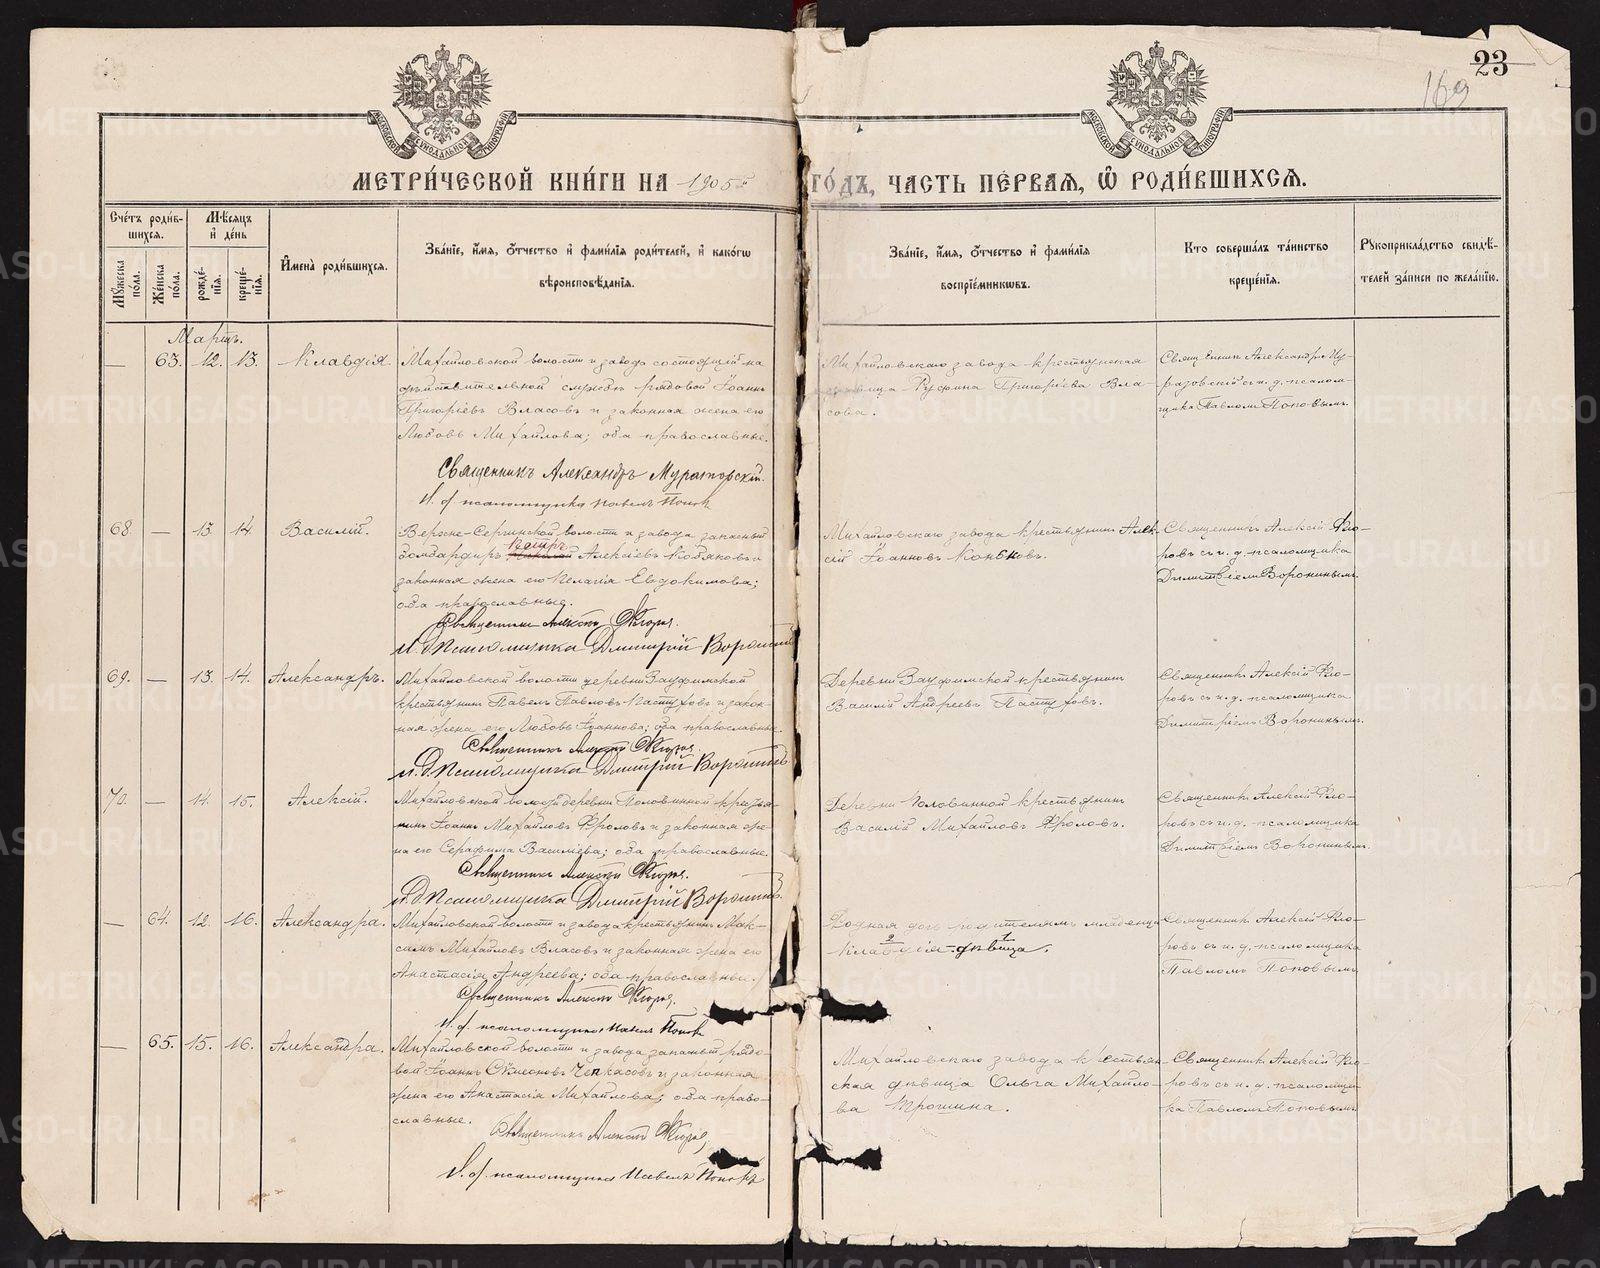 23
169
МОСКОВСКОЙ СѴНОДАЛЬНОЙ ТИПОГРАФІИ
МОСКОВСКОЙ СѴНОДАЛЬНОЙ ТИПОГРАФІИ
МЕТРИ́ЧЕСКОЙ КНИ́ГИ НА 1905 г ГО́ДЪ, ЧАСТЬ ПЕ́РВАЯ, Ѽ РОДИ́ВШИХСѦ.
Сче́тъ роди́в-
шихся.
Мѣ́сяцъ
и҆ де́нь
Мꙋ́жеска по́ла.
Же́нска по́ла.
рожде́-
нїя.
креще́-
нїя.
И҆мена̀ роди́вшихся.
Зва́нїе, и҆́мя, ѻ҆́тчество и҆ фами́лїя роди́телей, и҆ како́гѡ
вѣроисповѣ́данїя.
Зва́нїе, и҆́мя, ѻ҆́тчество и҆ фами́лїя
воспрїе́мникѡвъ.
Кто соверша́лъ та́инство
креще́нїя.
Рꙋкоприкла́дство свидѣ́-
телей за́писи по жела́нїю.
Мартъ.
— 63. 12. 13. Клавдія.
Михайловской волости и завода состоящій на
дѣйствительной службѣ рядовой Іоаннъ
Григоріевъ Власовъ и законная жена его
Любовь Михайлова; оба православные.
Священникъ Александръ Мураторскій.
И. д. псаломщика Павелъ Поповъ
Михайловскаго завода крестьянская
дѣвица Руфина Григоріева Вла-
сова.
Священникъ Александръ Му-
раторскій съ и. д. псалом-
щика Павломъ Поповымъ.
68 — 13 14. Василій.
Верхне-Сергинской волости и завода запасный
бомбардиръ Алексѣевъ Кобяковъ и
законная жена его Пелагія Евдокимова;
оба православные.
Священникъ Алексѣй Флоровъ.
И. д. псаломщика Дмитрій Воронинъ
Михайловскаго завода крестьянинъ Алек-
сій Іоанновъ Коневъ.
Священникъ Алексій Фло-
ровъ съ и. д. псаломщика
Димитріемъ Воронинымъ.
69. — 13. 14. Александръ.
Михайловской волости деревни Зауфимской
крестьянинъ Павелъ Павловъ Пастуховъ и закон-
ная жена его Любовь Іоаннова; оба православные.
Священникъ Алексѣй Флоровъ.
И. д. псаломщика Дмитрій Воронинъ
Деревни Зауфимской крестьянинъ
Василій Андреевъ Пастуховъ.
Священникъ Алексій Фло-
ровъ съ и. д. псаломщика
Димитріемъ Воронинымъ.
70. — 14. 15. Алексій.
Михайловской волости деревни Половинной крестья-
нинъ Іоаннъ Михайловъ Фроловъ и законная же-
на его Серафима Василіева; оба православные.
Священникъ Алексѣй Флоровъ.
И. д. псаломщика Дмитрій Воронинъ.
Деревни Половинной крестьянинъ
Василій Михайловъ Фроловъ.
Священникъ Алексій Фло-
ровъ съ и. д. псаломщика
Димитріемъ Воронинымъ.
— 64. 12. 16. Александра.
Михайловской волости и завода крестьянинъ Мак-
симъ Михайловъ Власовъ и законная жена его
Анастасія Андреева; оба православные.
Священникъ Алексѣй Флоровъ.
И. д. псаломщика Павелъ Поповъ
Родная дочь родителямъ младенца
Клавдія дѣвица.
Священникъ Алексій Фло-
ровъ съ и. д. псаломщика
Павломъ Поповымъ
— 65. 15. 16. Александра.
Михайловской волости и завода запасный рядо-
вой Іоаннъ Симеоновъ Черкасовъ и законная
жена его Анастасія Михайлова; оба право-
славные.
Священникъ Алексѣй Флоровъ,
И. д. псаломщика Павелъ Поповъ
Михайловскаго завода крестьян-
ская дѣвица Ольга Михайло-
ва Трошина.
Священникъ Алексій Фло-
ровъ съ и. д. псаломщи-
ка Павломъ Поповымъ
METRIKI.GASO-URAL.RU